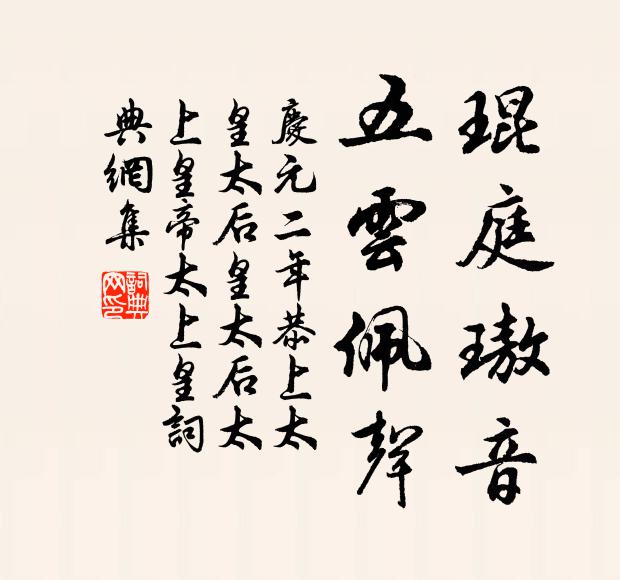 琨庭璈音
五雲佩聲
慶元二年恭上太
皇太后皇太后太
上皇帝太上皇詞
典網集
詞典網印